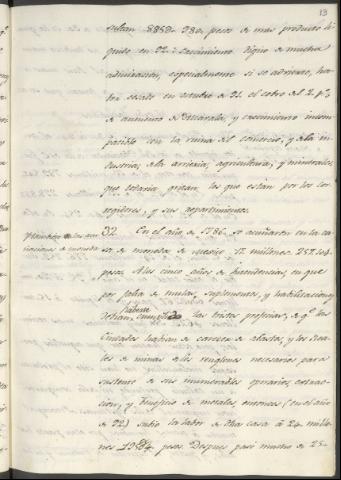 13
sultan 5.858.780. pesos de mas producto li-
quido en 92: crecimiento digno de mucha
admiracion, especialmente si se advierte, ha-
ver cesado en octubre de 91. el cobro del 2. p%
de aumento de Alcavala; y crecimiento incom-
patible con la ruina del comercio, y de la in-
dustria, de la arrieria, agricultura, y minerales,
que estaria gritan los que estan por los cor-
regidores, y sus repartimientos.
32. En el año de 1786. se acuñaron en la ca-
sa de moneda de Mexico 17. millones. 257.104.
pesos. A los cinco años de Intendencias, en que
por falta de mulas, suplementos, y habilitaciones,
debian haberse cumplido las tristes profecias, de q.e las
Ciudades habian de carecer de abastos, y los Rea-
les de minas de los renglones necesarios para
sustento de sus innumerables operarios, extrac-
cion, y beneficio de metales, entonces (en el año
de 92) subió la labor de dha casa á 24. millo-
nes pesos. Despues pasó mucho de 25-